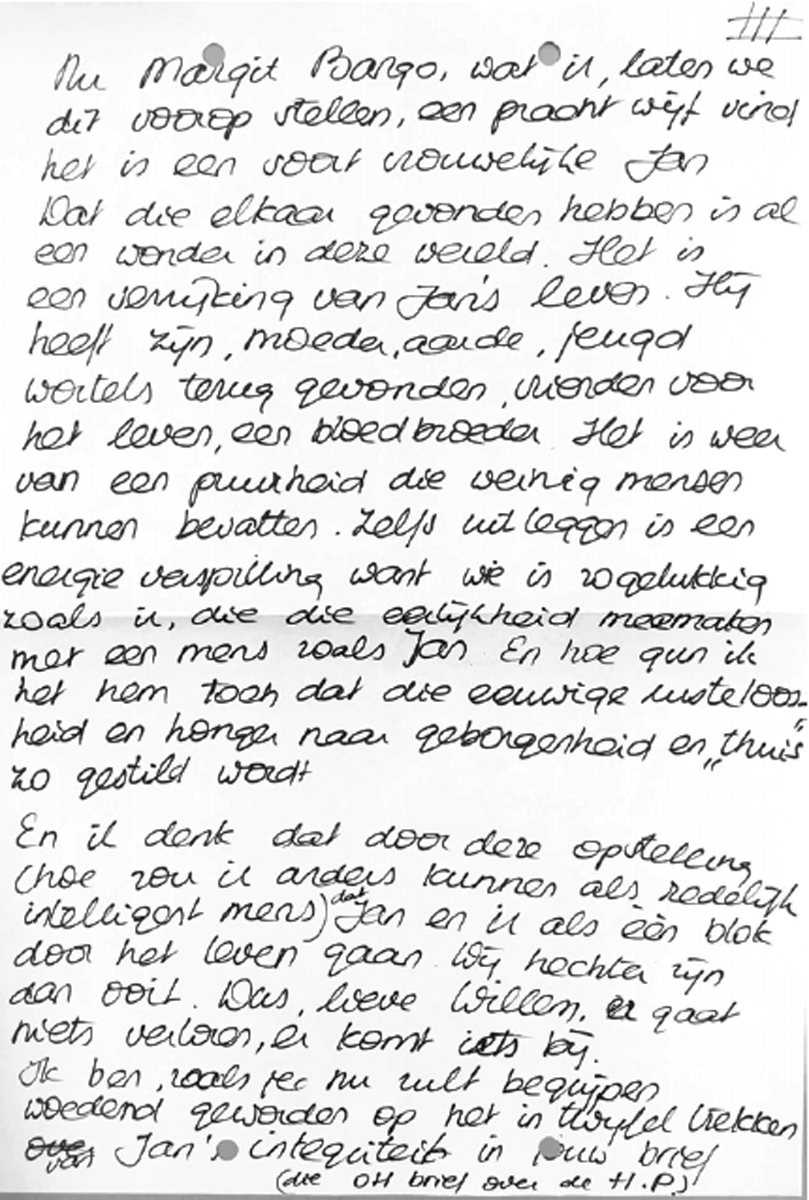 III
Nu Margit Bango, wat ik, laten we
dit voorop stellen, een pracht wijf vind
het is een soort vrouwelijke Jan
Dat die elkaar gevonden hebben is al
een wonder in deze wereld. Het is
een verrijking van Jan's leven. Hij
heeft zijn, moeder, aarde, jeugd
wortels terug gevonden, vrienden voor
het leven, een bloedbroeder. Het is weer
van een puurheid die weinig mensen
kunnen bevatten. Zelfs uitleggen is een
energie verspilling want wie is zo gelukkig
zoals ik, die die eerlijkheid meemaken
met een mens zoals Jan. En hoe gun ik
het hem toch dat die eeuwige rusteloos-
heid en honger naar geborgenheid en „thuis"
zo gestild wordt
En ik denk dat door deze opstelling
(hoe zou ik anders kunnen als redelijk
intelligent mens) dat Jan en ik als één blok
door het leven gaan. Wij hechter zijn
dan ooit. Dus, lieve Willem, er gaat
niets verloren, er komt iets bij.
Ik ben, zoals je nu zult begrijpen
woedend geworden op het in twijfel trekken
van Jan's integriteit in jouw brief
(die OH brief over de H.P.)